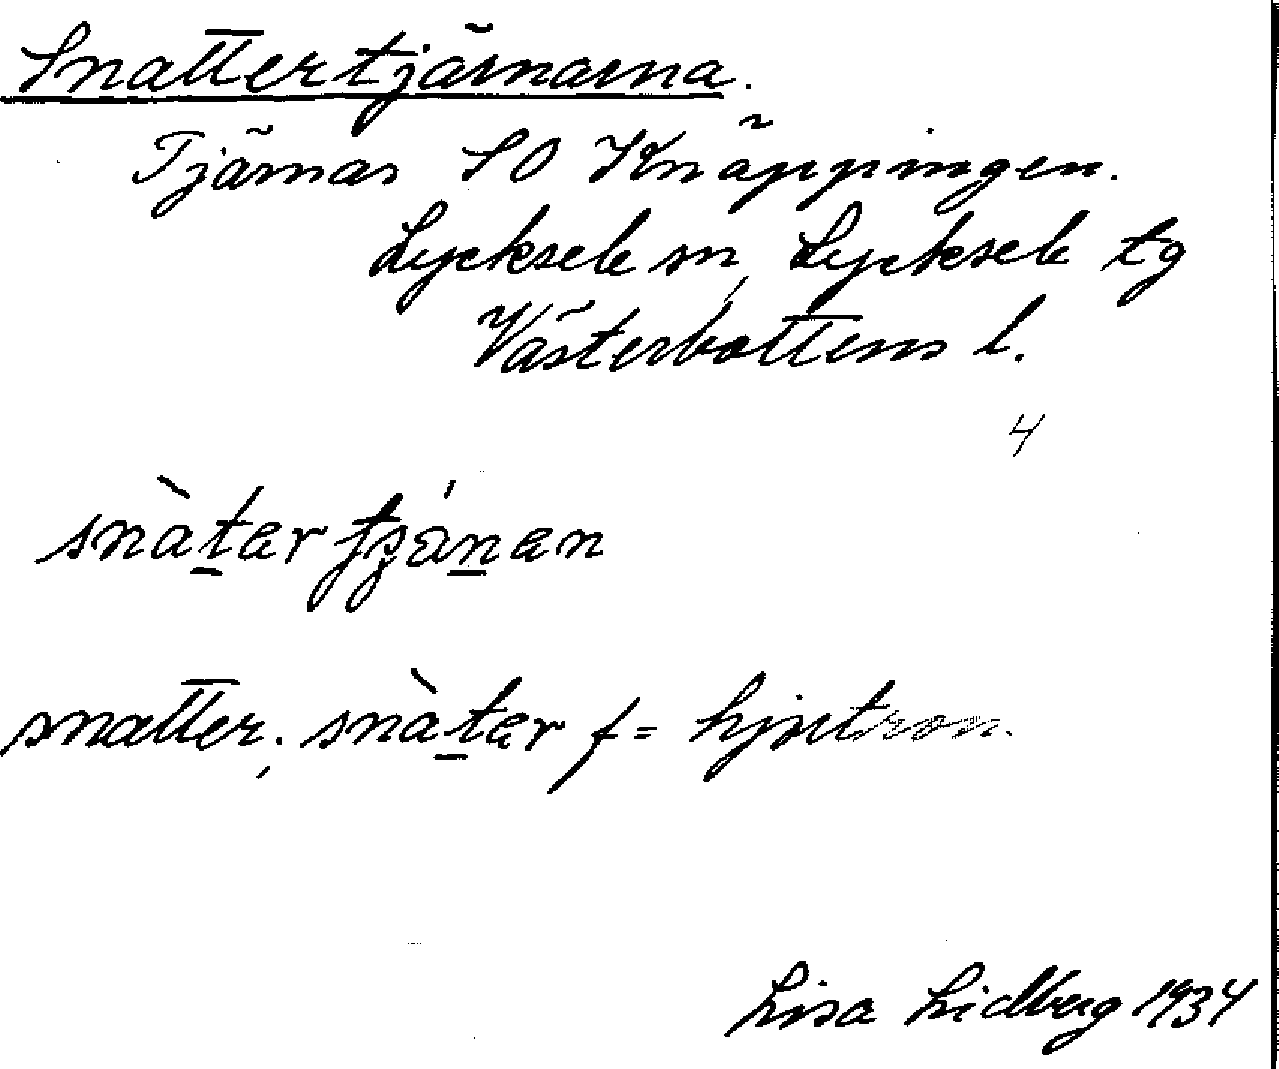 Snattertjärnarna.
Tjärnar SO Knäppingen.
Lycksele sn, Lycksele tg
Västerbottens l.
4
snàt̲ær
snatter, snàt̲ær f = hjortron.
Lisa Lidberg 1934